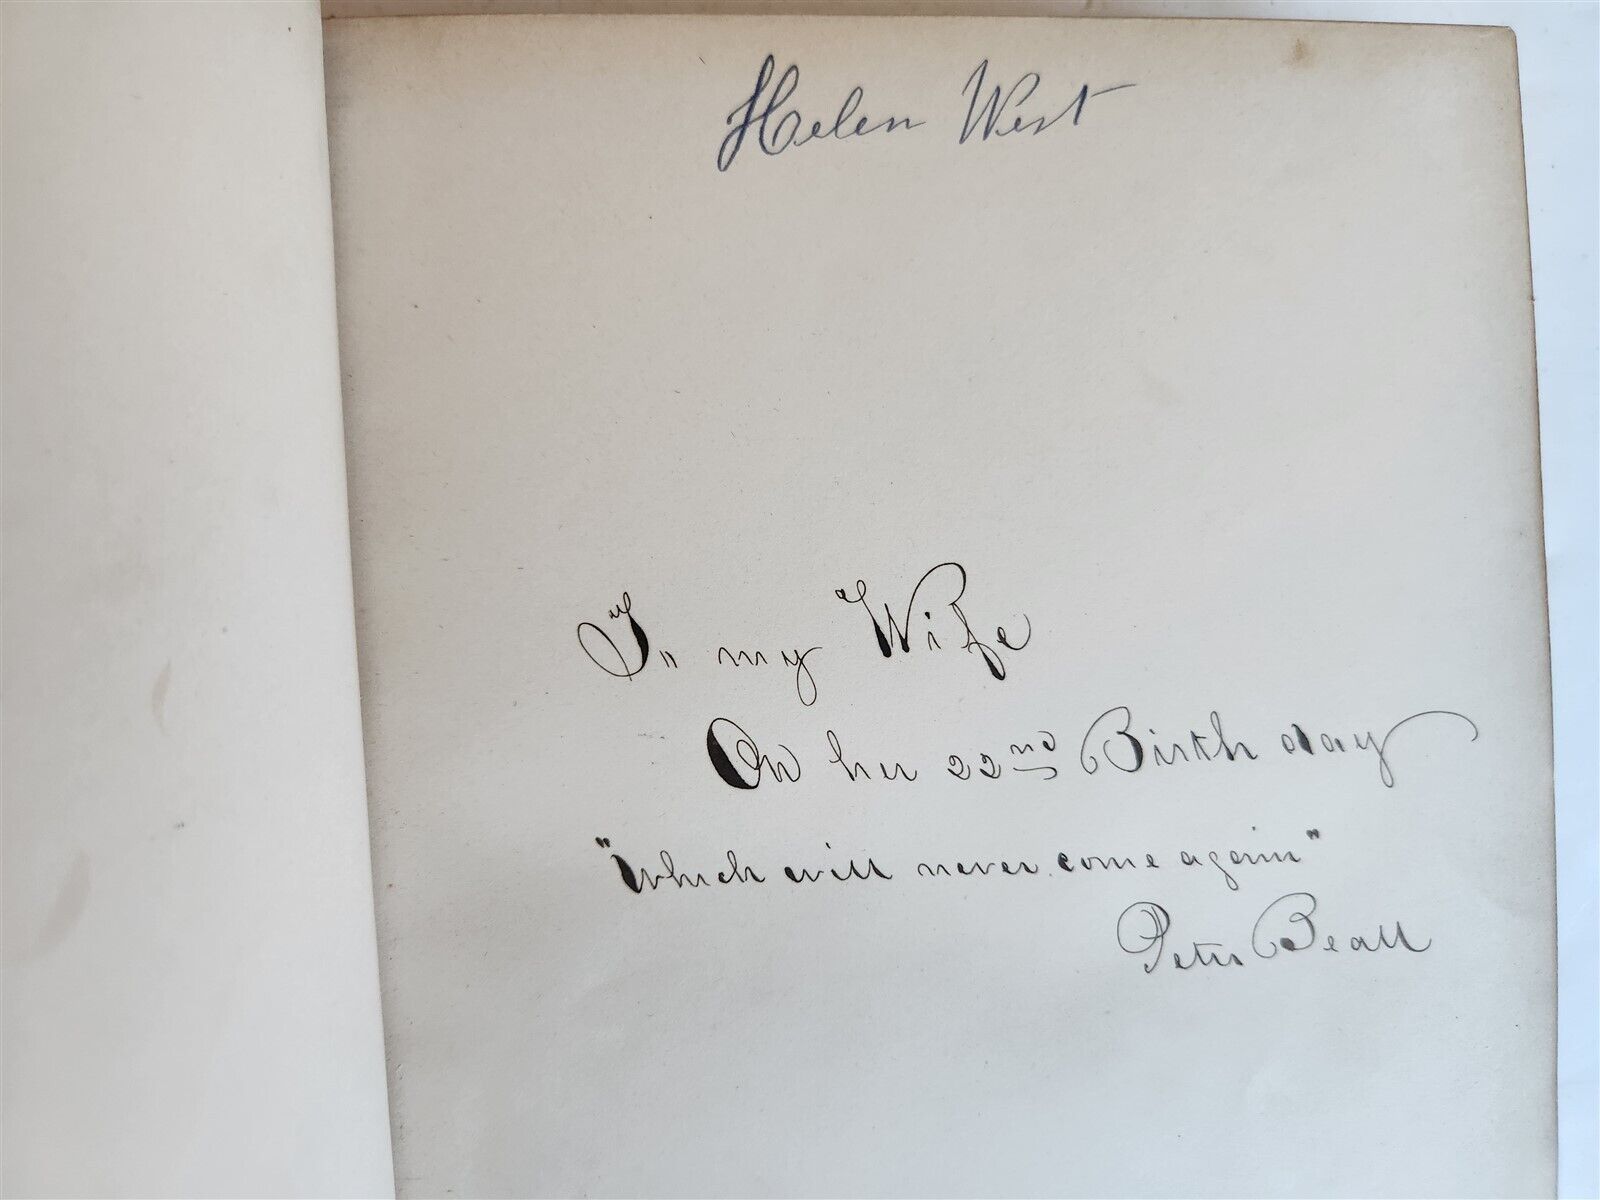 Helen West
To my Wife
On her 22nd Birth day
"Which will never come again"
Peter Beall